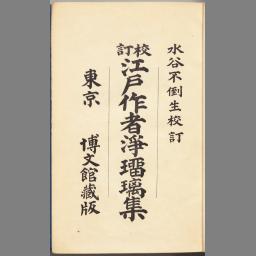 水谷不倒生校訂
校訂 江戸作者淨瑠璃集
東京 博文館藏版